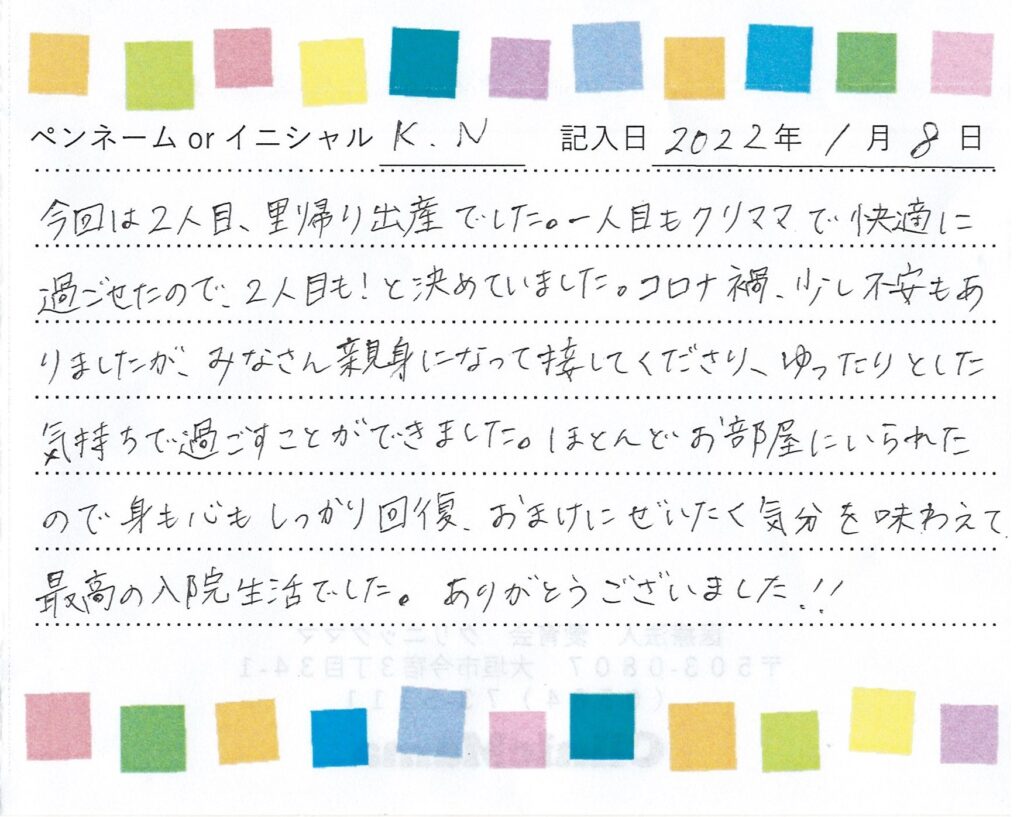 ペンネーム or イニシャル K.N 記入日 2022年 1月 8日
今回は2人目、里帰り出産でした。一人目もクリママで快適に
過ごせたので、2人目も!と決めていました。コロナ禍、少し不安もあ
りましたが、みなさん親身になって接してくださり、ゆったりとした
気持ちで過ごすことができました。ほとんどお部屋にいられた
ので身も心もしっかり回復、おまけにぜいたく気分を味わえて
最高の入院生活でした。ありがとうございました!!
医療法人 愛育会 クリニックママ
〒503-0807 大垣市今宿3丁目34-1